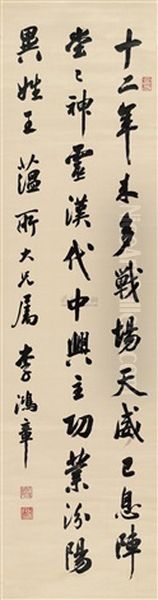 十二年来多戰場天威已息陣
堂〻神靈漢代中興主功業汾陽
異姓王 薀所大兄属 李鴻章